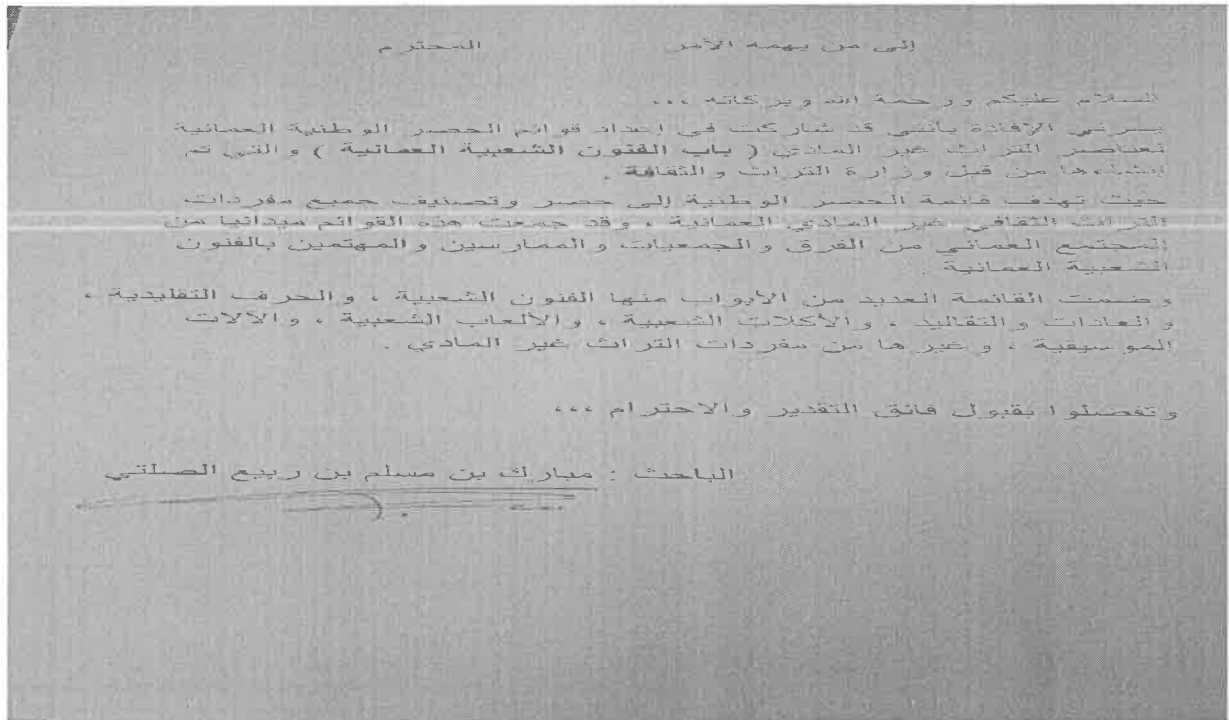 إلى من يهمه الأمر المحترم
السلام عليكم ورحمة الله وبركاته ،،،
يسرني الإفادة بأنني قد شاركت في إعداد قوائم الحصر الوطنية العمانية
لعناصر التراث غير المادي ( باب الفنون الشعبية العمانية ) والتي تم
إنشاءها من قبل وزارة التراث والثقافة .
حيث تهدف قائمة الحصر الوطنية إلى حصر وتصنيف جميع مفردات
التراث الثقافي غير المادي العمانية ، وقد جمعت هذه القوائم ميدانيا من
المجتمع العماني من الفرق والجمعيات والممارسين والمهتمين بالفنون
الشعبية العمانية .
وضمت القائمة العديد من الأبواب منها الفنون الشعبية ، والحرف التقليدية ،
والعادات والتقاليد ، والأكلات الشعبية ، والألعاب الشعبية ، والآلات
الموسيقية ، وغيرها من مفردات التراث غير المادي .
وتفضلوا بقبول فائق التقدير والاحترام ،،،
الباحث : مبارك بن مسلم بن ربيع الصلتي